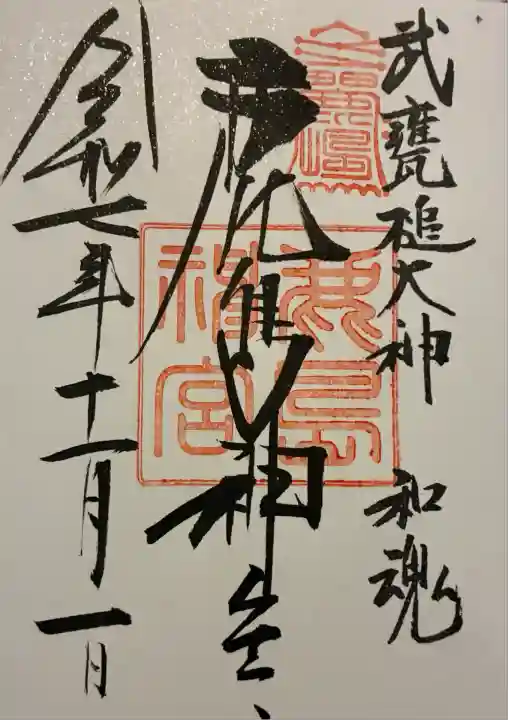 武甕槌大神 和魂
鹿島神宮
令和七年十一月一日
鹿島神宮